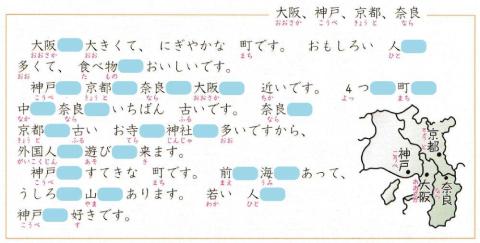 大阪、神戸、京都、奈良
おおさか こうべ きょうと なら
大阪 大きくて、 にぎやかな 町です。 おもしろい 人
おおさか おお まち ひと
多くて、 食べ物 おいしいです。
おお た もの
神戸 京都 奈良 大阪 近いです。 4つ 町
こうべ きょうと なら おおさか ちか よっ まち
中 奈良 いちばん 古いです。 奈良
なか なら ふる なら
京都 古い お寺 神社 多いですから、
きょうと ふる てら じんじゃ おお
外国人 遊び 来ます。
がいこくじん あそ き
神戸 すてきな 町です。 前 海 あって、
こうべ まち まえ うみ
うしろ 山 あります。 若い 人
やま わか ひと
神戸 好きです。
こうべ す
京都
きょうと
神戸
こうべ
大阪
おおさか
奈良
なら